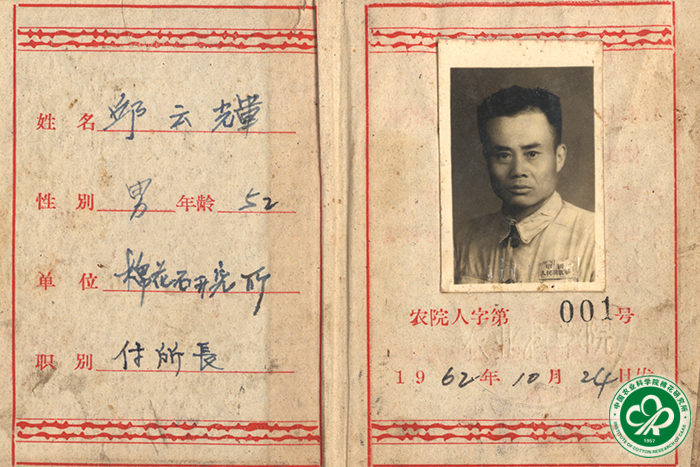 姓 名 邱云輝
性 别 男 年龄 52
单 位 棉花研究所
职 别 付所長
农院人字第 001号
1962年10月24日
中国农业科学院棉花研究所
1957
INSTITUTE OF COTTON RESEARCH OF CAAS